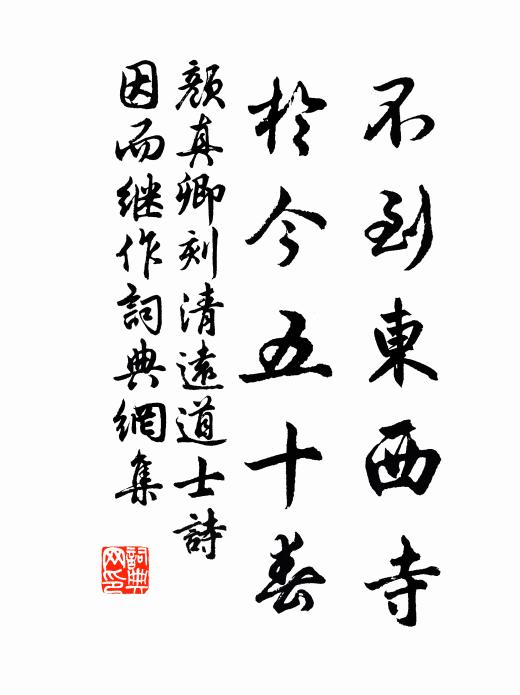 不到東西寺
於今五十春
顏真卿刻清遠道士詩
因而继作詞典網集
詞典網印